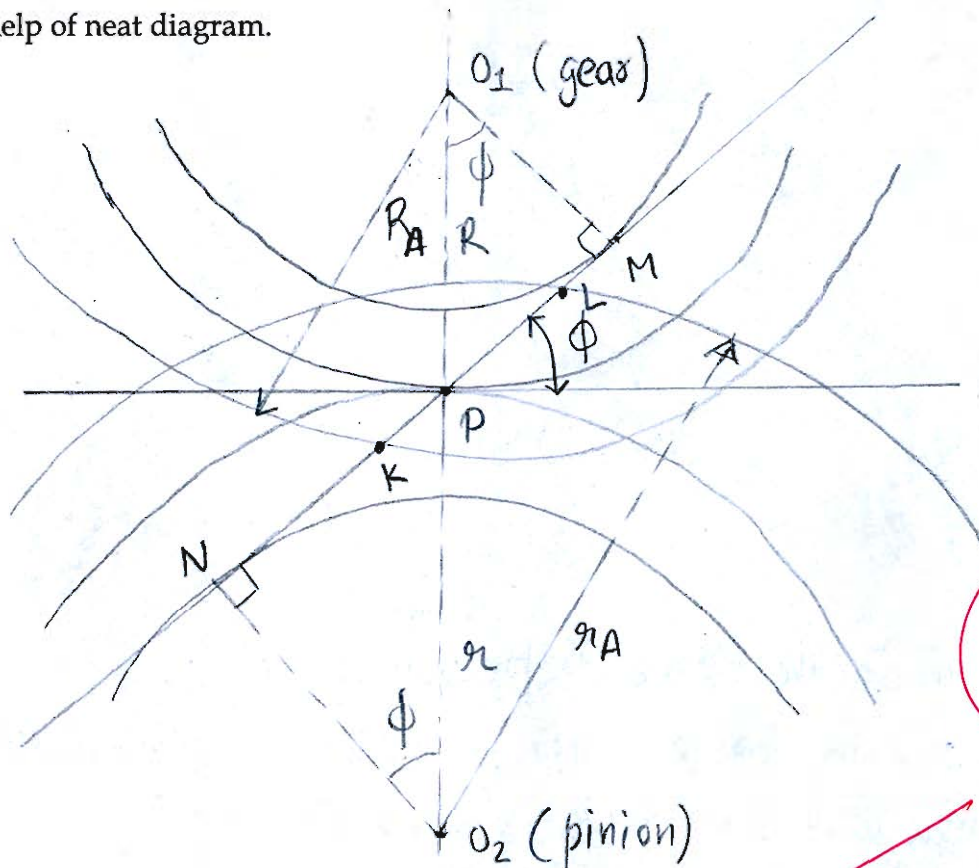 elp of neat diagram.
O1 (gear)
ϕ
RA R
M
L
ϕ
P
K
N
r
rA
ϕ
O2 (pinion)